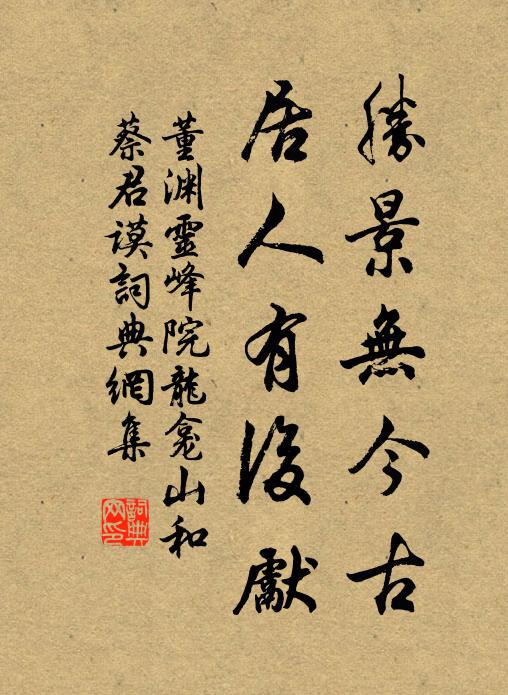 勝景無今古
居人有後獻
董渊靈峰院龍龛山和
蔡君謨詞典網集
詞典网印